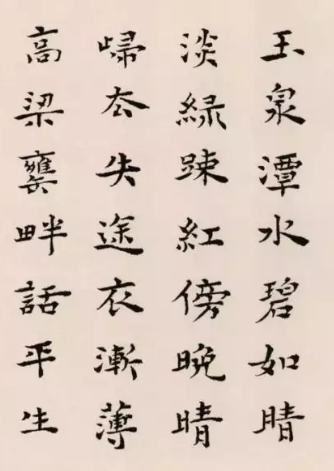 玉泉潭水碧如睛
淡緑踈紅傍晚晴
歸去失途衣漸薄
高梁甕畔話平生